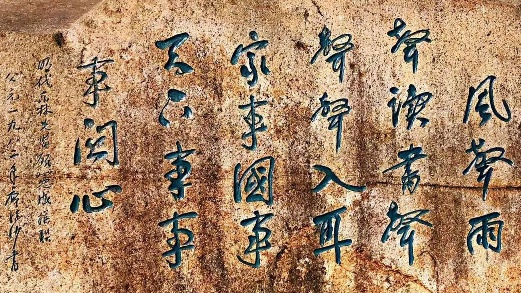 風聲雨
聲讀書聲
聲聲入耳
家事國事
天下事事
事關心
明代東林顧憲成
公元一九八二年廖沫沙書